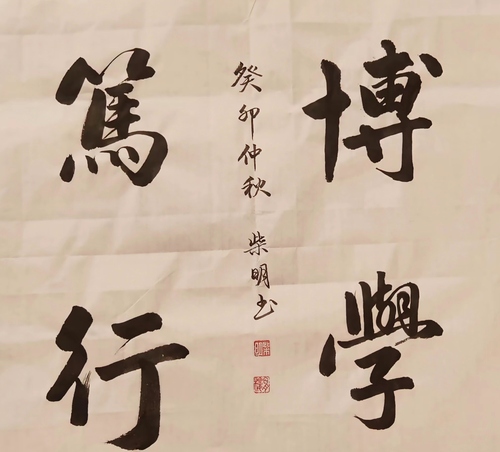 博學
篤行
癸卯仲秋 柴明书